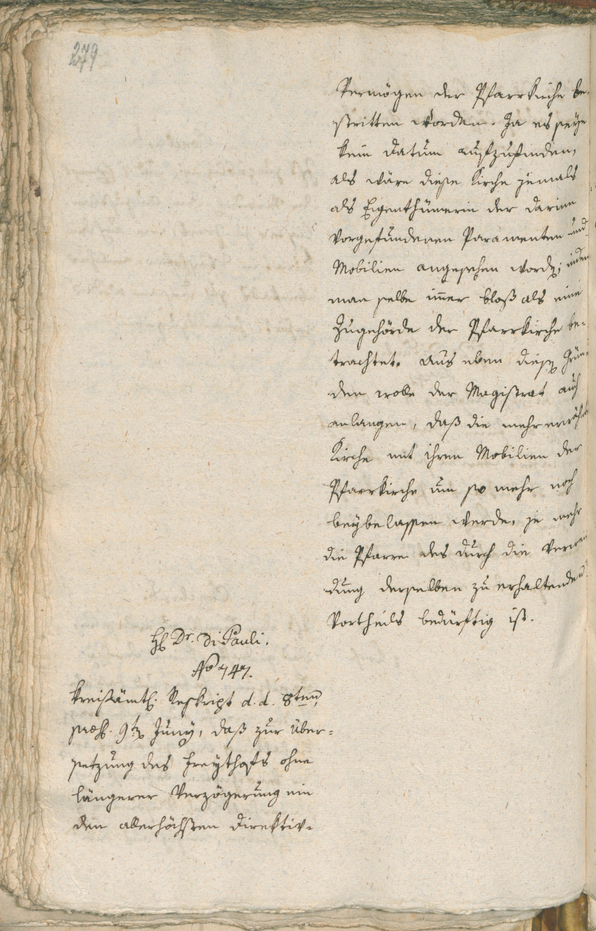 Vermögen der Pfarrkirche be-
stritten worden. Ja es seye
kein Datum aufzufinden,
als wäre diese Kirche jemals
als Eigenthümerin der darinn
vorgefundenen Paramenten und
Mobilien angesehen word; indem
man selbe immer bloß als eine
Zugehörde der Pfarrkirche be-
trachtet. Aus eben diesen Grün-
den wolle der Magistrat auch
anlangen, daß die mehrerwähnte
Kirche mit ihren Mobilien der
Pfarrkirche um so mehr noch
beybelassen werde, je mehr
die Pfarre des durch die Verwen-
dung derselben zu erhaltenden
Vortheils bedürftig ist.
H Dr. Di Pauli.
No 747.
Kreisämtl. Reskript d. d. 8ten
praes. 9t Juny, daß zur Über-
setzung des Freythofs ohne
längerer Verzögerung ein
den allerhöchsten Direktiv-